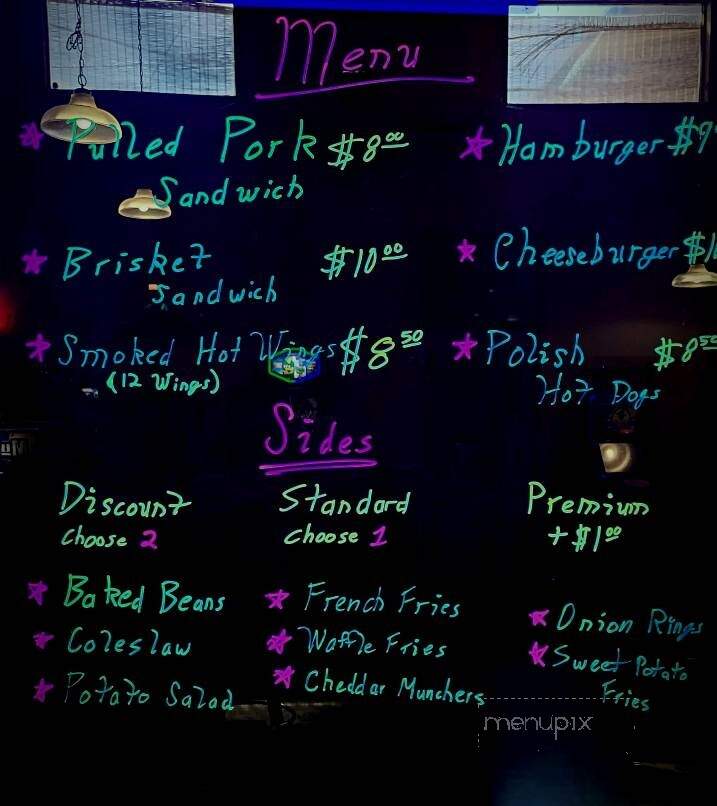 Menu
Pulled Pork $8.00
Sandwich
Hamburger $9
Brisket $10.00
Sandwich
Cheeseburger $1
Smoked Hot Wings $8.50
(12 Wings)
Polish $8.50
Hot Dogs
Sides
Discount
Choose 2
Standard
Choose 1
Premium
+ $1.00
Baked Beans
Coleslaw
Potato Salad
French Fries
Waffle Fries
Cheddar Munchers
Onion Rings
Sweet Potato
Fries
menupix